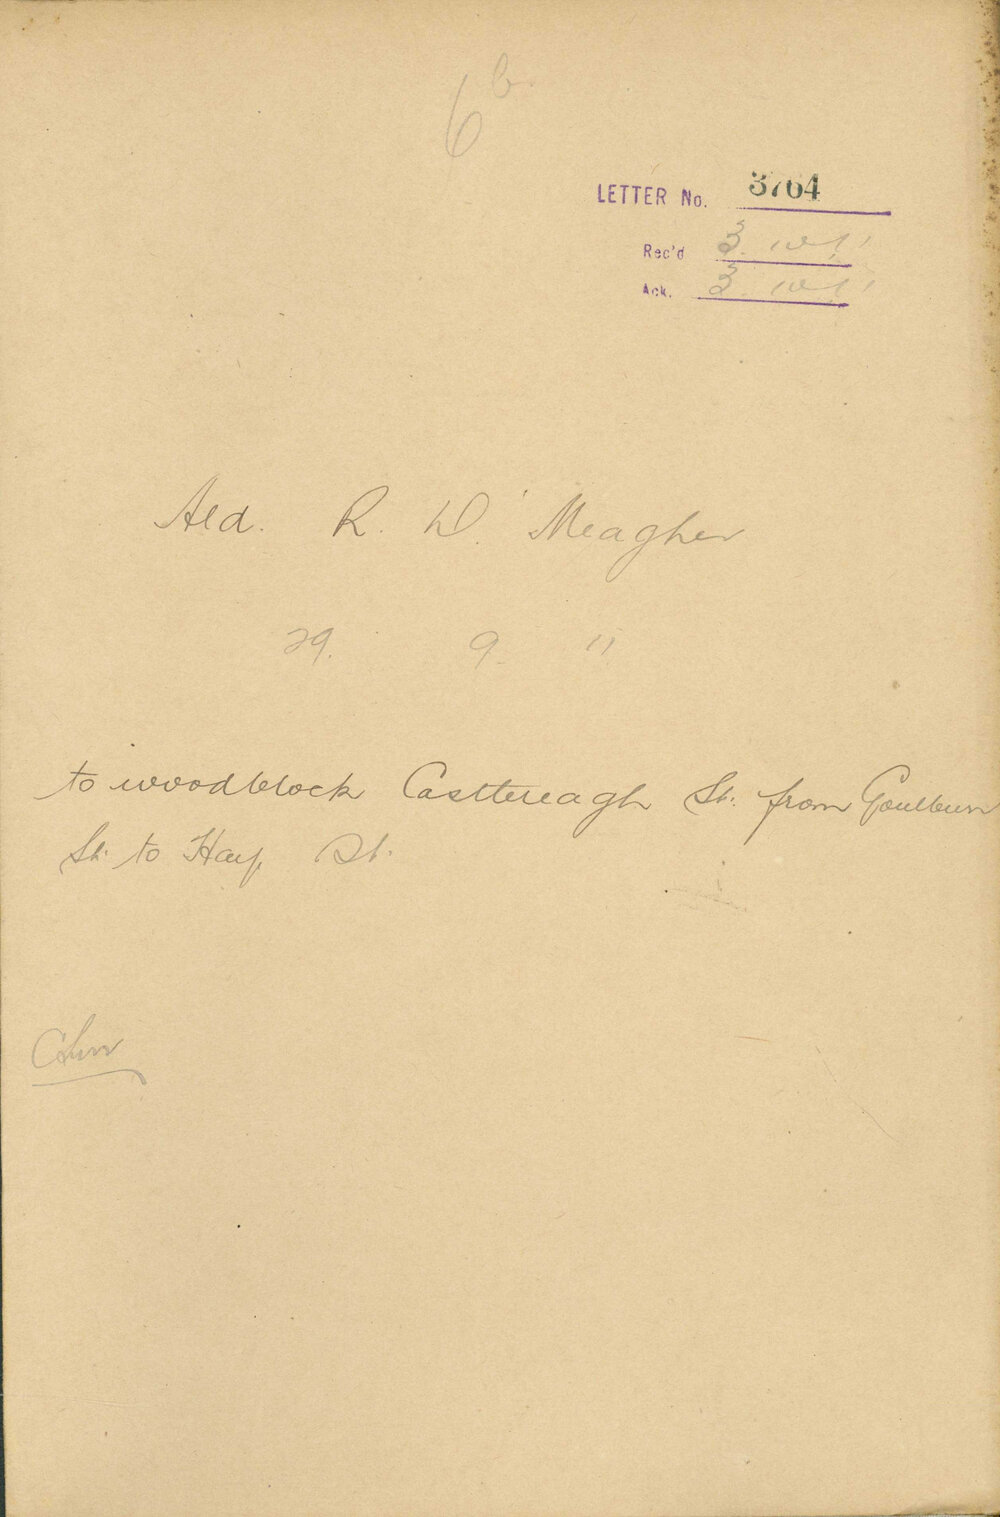 6b
LETTER No. 3764
Rec'd 3
Ack. 3
Ald. R. D. Meagher
29. 9. 11
to woodblock Castlereagh St. from Goulburn
St. to Hay St.